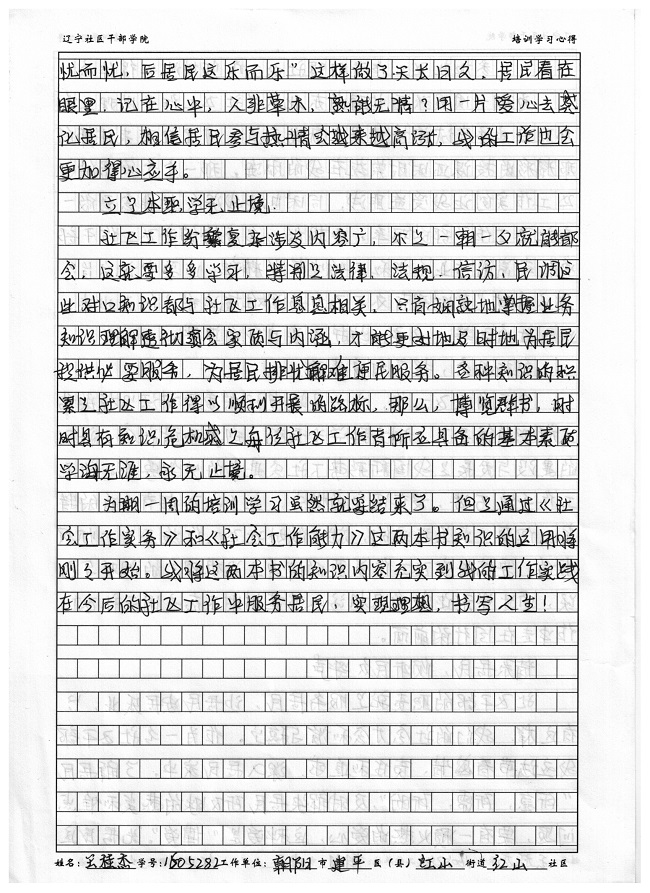 辽宁社区干部学院 培训学习心得
忧而忧，后居民这乐而乐”这样做了天长日久，居民看在
眼里，记在心中，人非草木，孰能无情？用一片爱心去
居民，相信居民参与热情会越来越高涨，我的工作也会
更加得心应手。
立足本职学无止境
社区工作的繁复杂涉及内容广，不是一朝一夕就能都
会，这就要多多学习，特别是法律、法规、信访、民调
些对口知识都与社区工作息息相关，只有地掌握业务
知识理解透彻领会实质与内涵，才能更好地及时地为居民
提供必要服务，为居民排忧解难便民服务。各种知识的积
累是社区工作得以顺利开展的，那么，博览群书，时
时具有知识危机感是每位社区工作者所应具备的基本素质
学海无涯，永无止境。
为期一周的培训学习虽然就要结束了。但是通过《社
会工作实务》和《社会工作能力》这两本书知识的运用将
刚刚开始。我将这两本书的知识内容充实到我的工作实践
在今后的社区工作中服务居民，实现理想，书写人生！
姓名：桂杰 学号：1605282 工作单位：朝阳 市 建平 区（县）红山 街道 红山 社区